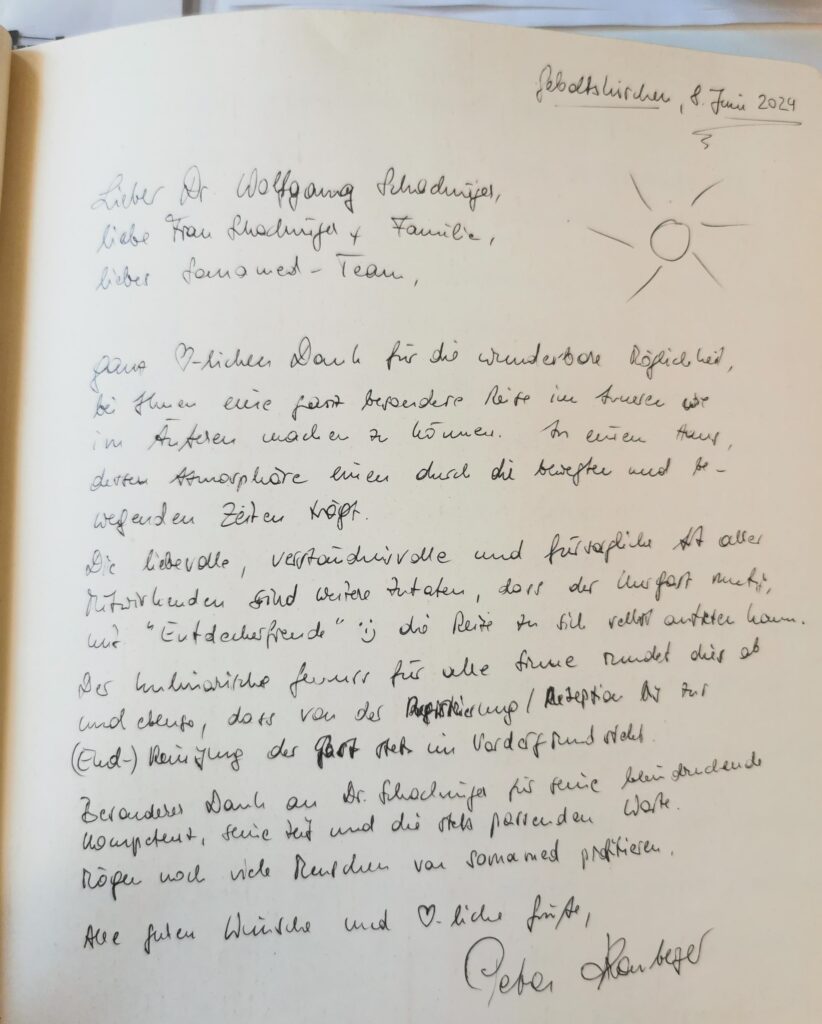 Geboltskirchen, 8. Juni 2024
Lieber Dr. Wolfgang Schachinger,
liebe Frau Schachinger + Familie,
liebes Samamed-Team,
ganz ♡-lichen Dank für die wunderbare Möglichkeit,
bei Ihnen eine ganz besondere Reise im Inneren wie
im Äußeren machen zu können. In einem Haus,
dessen Atmosphäre einen durch die bewegten und be-
wegenden Zeiten trägt.
Die liebevolle, verständnisvolle und fürsorgliche Art aller
Mitwirkenden sind weitere Zutaten, dass der Kurgast mutig,
mit "Entdeckerfreude" :) die Reise zu sich selbst antreten kann.
Der kulinarische Genuss für alle Sinne rundet dies ab
und ebenso, dass von der Registrierung / Rezeption bis zur
(End-) Reinigung der Gast stets im Vordergrund steht.
Besonderer Dank an Dr. Schachinger für seine beeindruckende
Kompetenz, seine Zeit und die stets passenden Worte.
Mögen noch viele Menschen von samamed profitieren.
Alle guten Wünsche und ♡-liche Grüße,
Peter